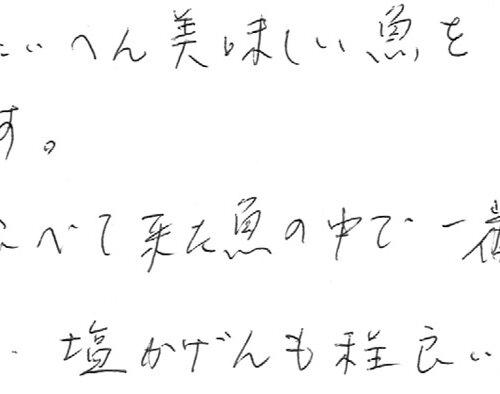 たいへん美味しい魚を
す。
べて来た魚の中で一番
塩かげんも程良い